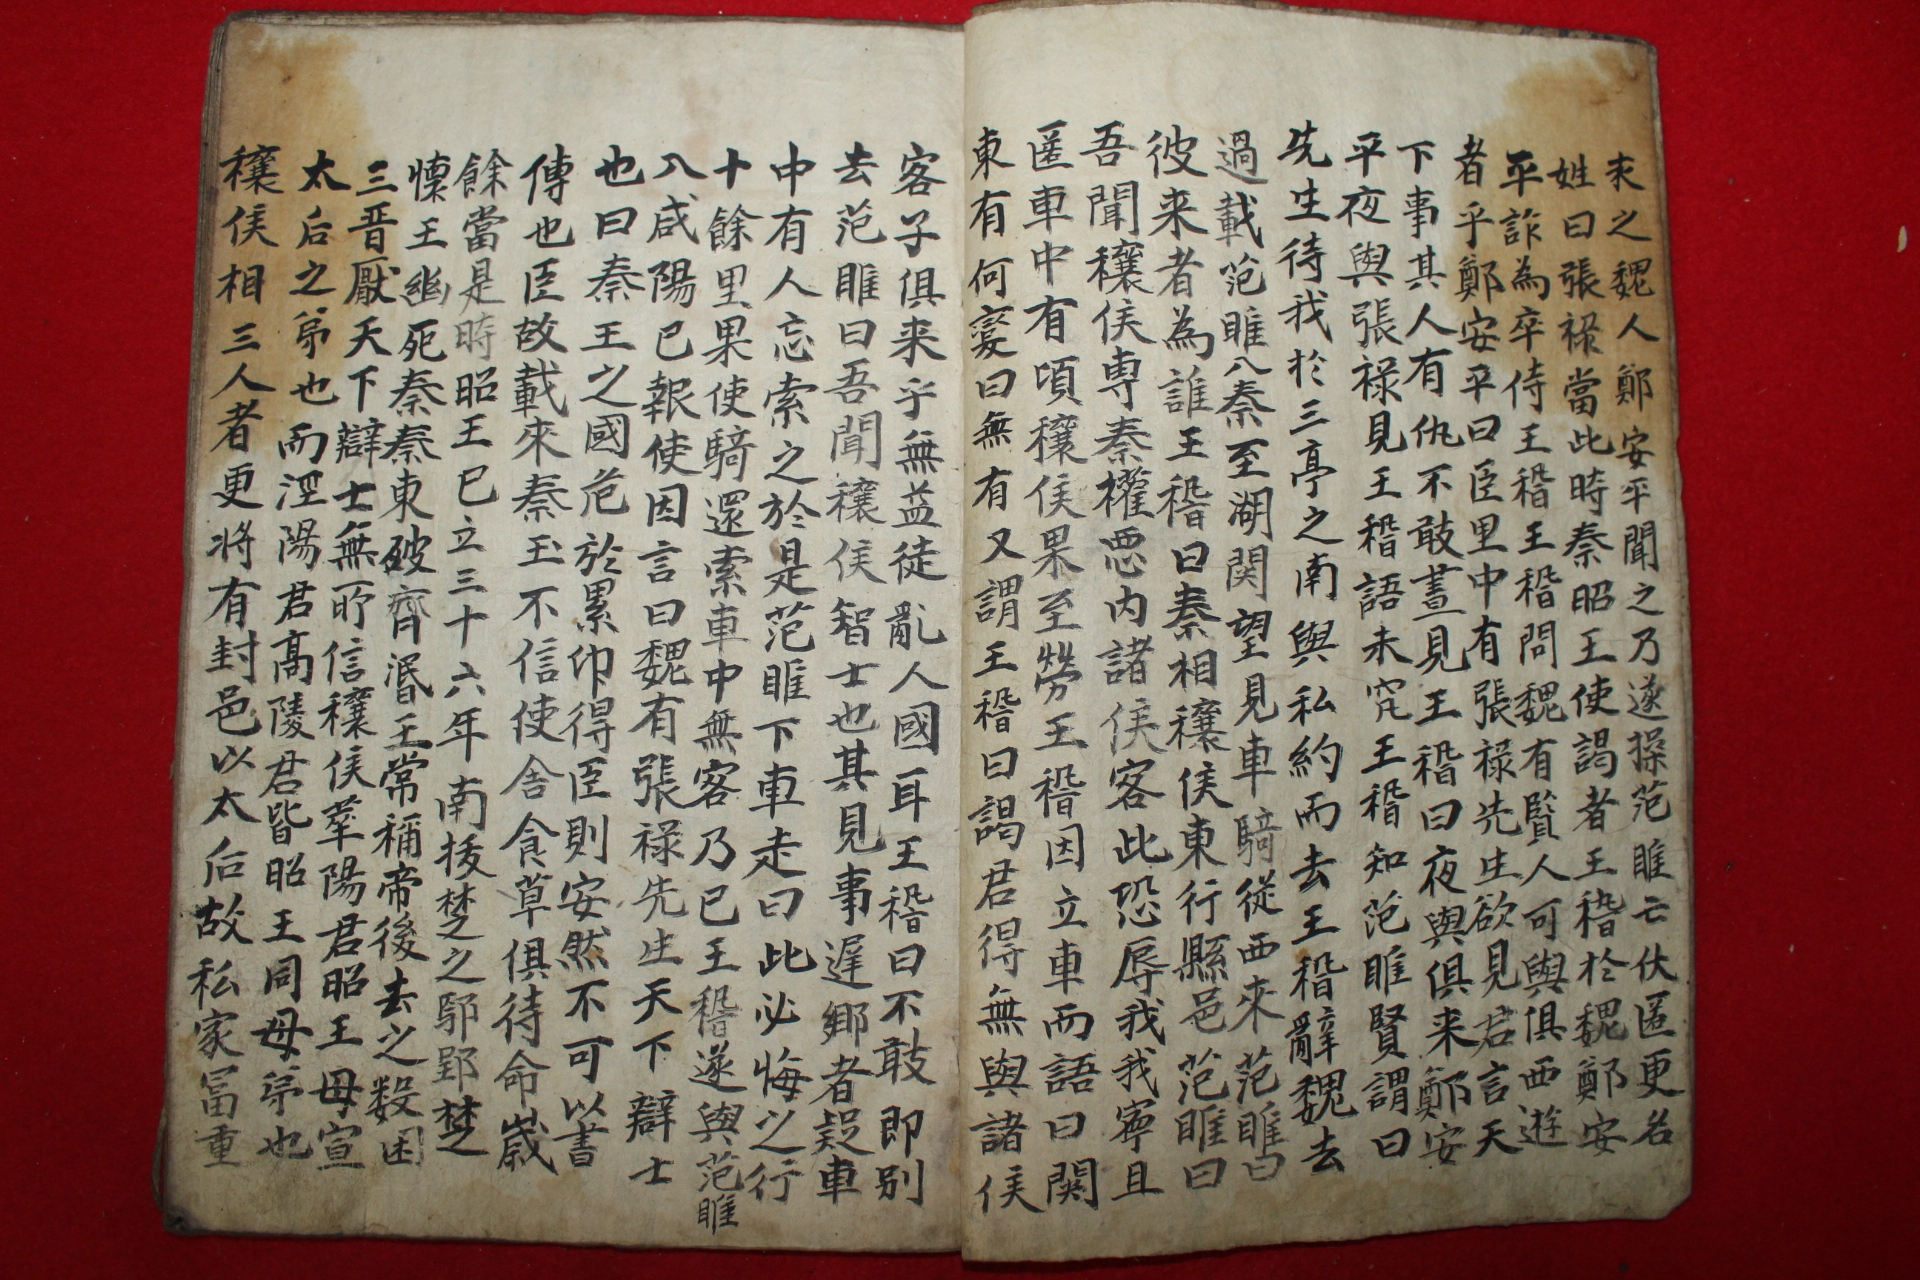 求之魏人鄭安平聞之乃遂操范睢亡伏匿更名
姓曰張祿當此時秦昭王使謁者王稽於魏鄭安
平詐為卒侍王稽王稽問魏有賢人可與俱西遊
者乎鄭安平曰臣里中有張祿先生欲見君言天
下事其人有仇不敢晝見王稽曰夜與俱来鄭安
平夜與張祿見王稽語未究王稽知范睢賢謂曰
先生待我於三亭之南與私約而去王稽辭魏去
過載范睢入秦至湖関望見車騎從西來范睢曰
彼来者為誰王稽曰秦相穰侯東行縣邑范睢曰
吾聞穰侯専秦權惡内諸侯客此恐辱我我寧且
匿車中有頃穰侯果至勞王稽因立車而語曰関
東有何変曰無有又謂王稽曰謁君得無與諸侯
客子俱来乎無益徒亂人國耳王稽曰不敢即別
去范睢曰吾聞穰侯智士也其見事遲鄉者疑車
中有人忘索之於是范睢下車走曰此必悔之行
十餘里果使騎還索車中無客乃已王稽遂與范睢
入咸陽已報使因言曰魏有張祿先生天下辯士
也曰秦王之國危於累卵得臣則安然不可以書
傳也臣故載來秦王不信使舍食草俱待命歲
餘當是時昭王已立三十六年南拔楚之鄢郢楚
懷王幽死秦秦東破齊湣王常稱帝後去之数困
三晋厭天下辯士無所信穰侯華陽君昭王母宣
太后之弟也而涇陽君高陵君皆昭王同母弟也
穰侯相三人者更将有封邑以太后故私家冨重